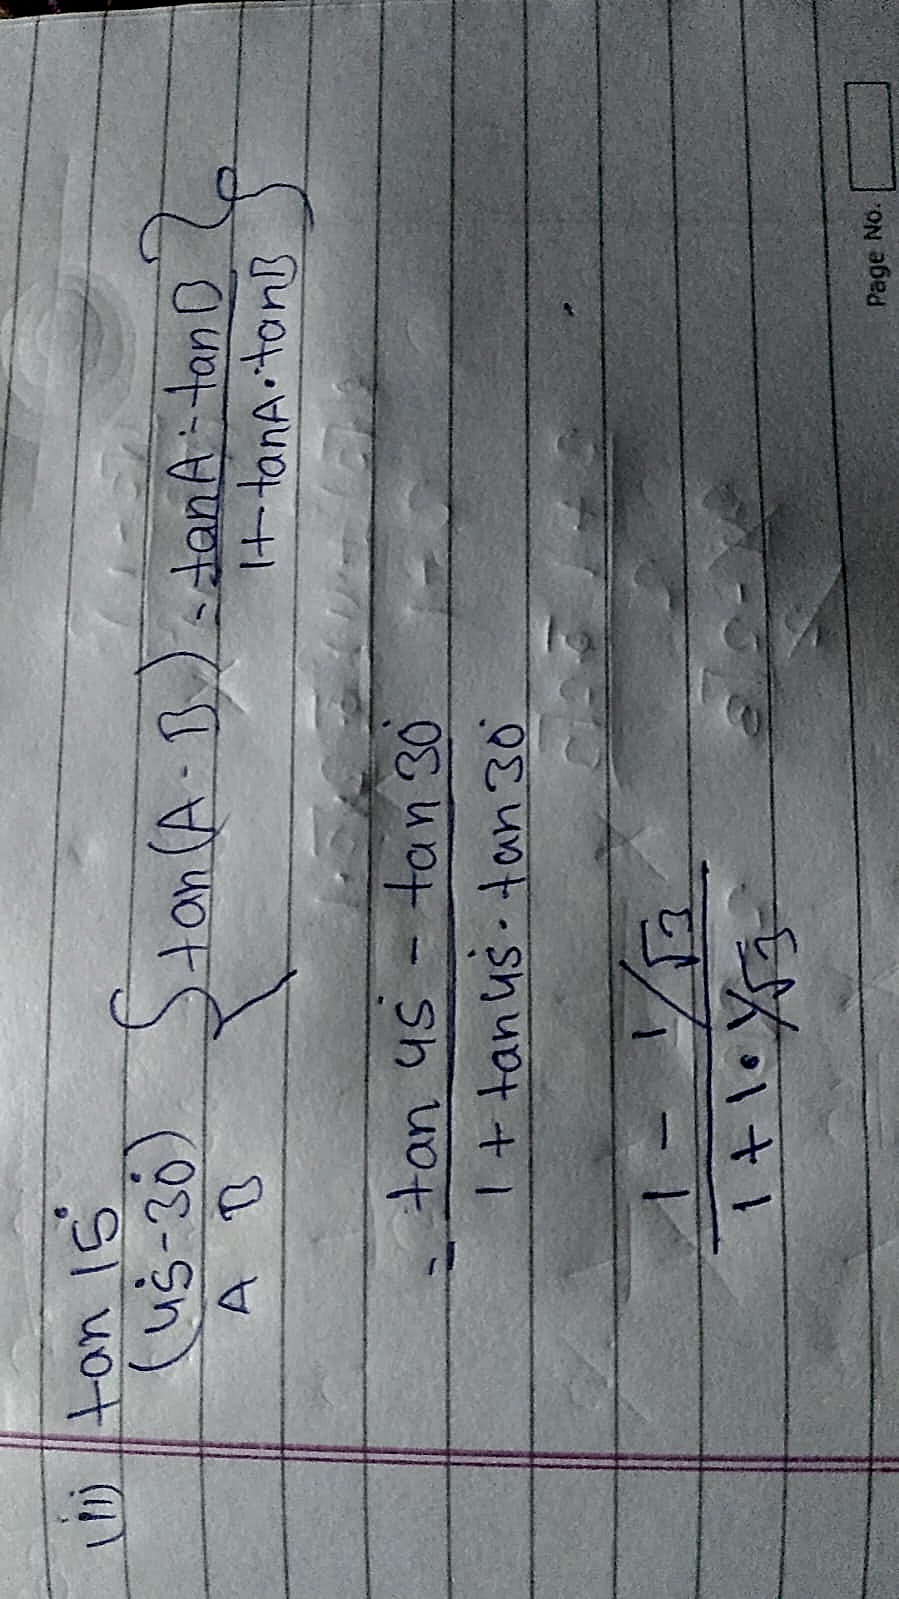 (ii) tan 15°
(45°-30°) { tan(A-B) = tanA - tanB }
A B 1+ tanA·tanB
= tan 45° - tan 30°
1 + tan 45° · tan 30°
1 - 1/√3
1 + 1·1/√3
Page No.